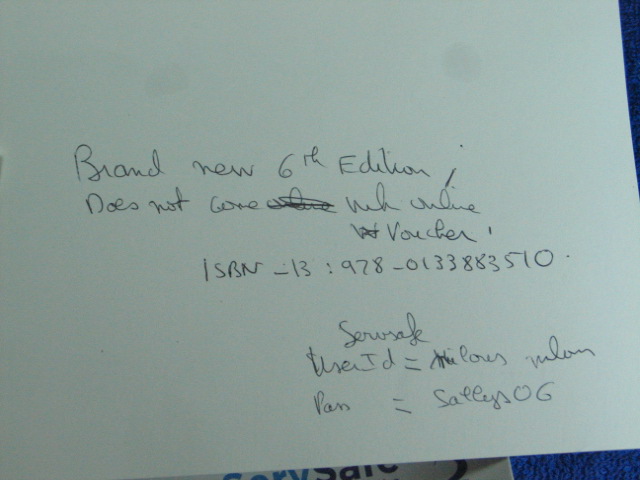 Brand new 6th Edition,
Does not come with online
Voucher.
ISBN -13 : 978 -0133883510.
Servsafe
UserId =
Pass = Sallys06
ServSafe